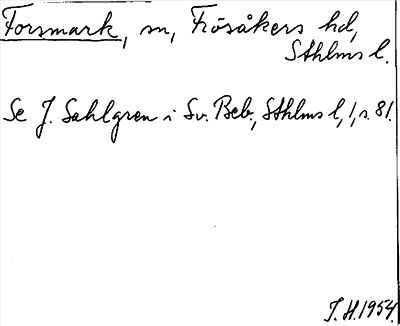 Forsmark, sn, Frösåkers hd,
Sthlms l.
Se J. Sahlgren i Sv. Beb., Sthlms l, 1, s. 81.
J. H. 1954.